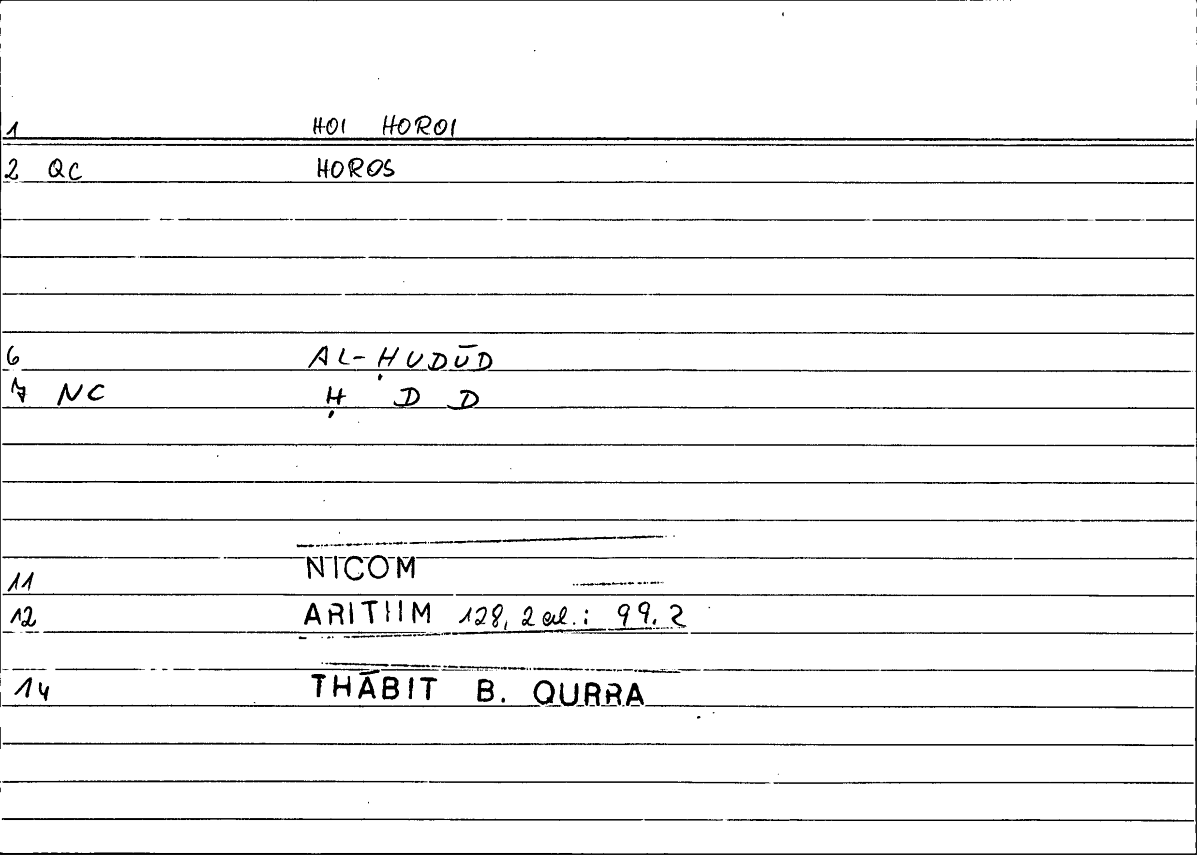 1 HOI HOROI
2 QC HOROS
6 AL-ḤUDŪD
7 NC Ḥ D D
11 NICOM
12 ARITHM 128, 2 al.: 99. 2
14 THĀBIT B. QURRA